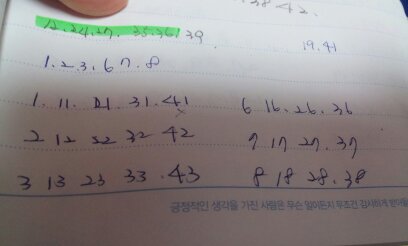 38 42.
12.24.27. 35.36.39
19.41
1.2.3.6 7.8
1. 11. 21. 31.41 6 16.26.36
2 12 22 32 42 7 17 27.37
3 13 23 33.43 8 18 28.38
긍정적인 생각을 가진 사람은 무슨 일이든지 무조건 감사하게 받아들